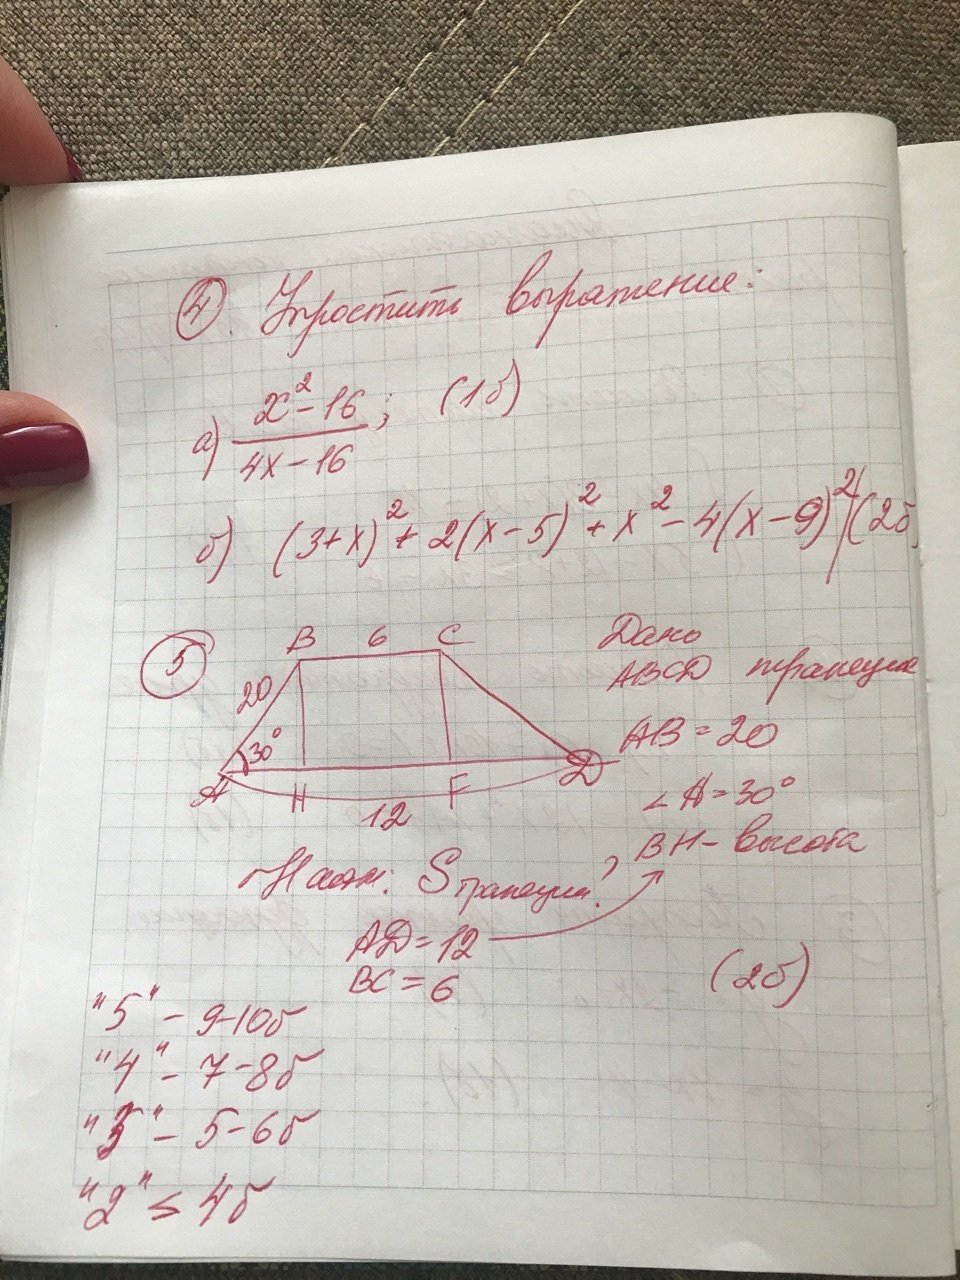 4. Упростить выражение:
а) x² - 16 / 4x - 16 ; (1б)
б) (3+x)² + 2(x-5)² + x² - 4(x-9)² (2б
5
B 6 C
20
30°
A H F D
12
Дано
ABCD трапеция
AB = 20
∠A = 30°
BH - высота
Найти: Sтрапеции?
AD = 12
BC = 6
(2б)
"5" - 9-10б
"4" - 7-8б
"3" - 5-6б
"2" ≤ 4б